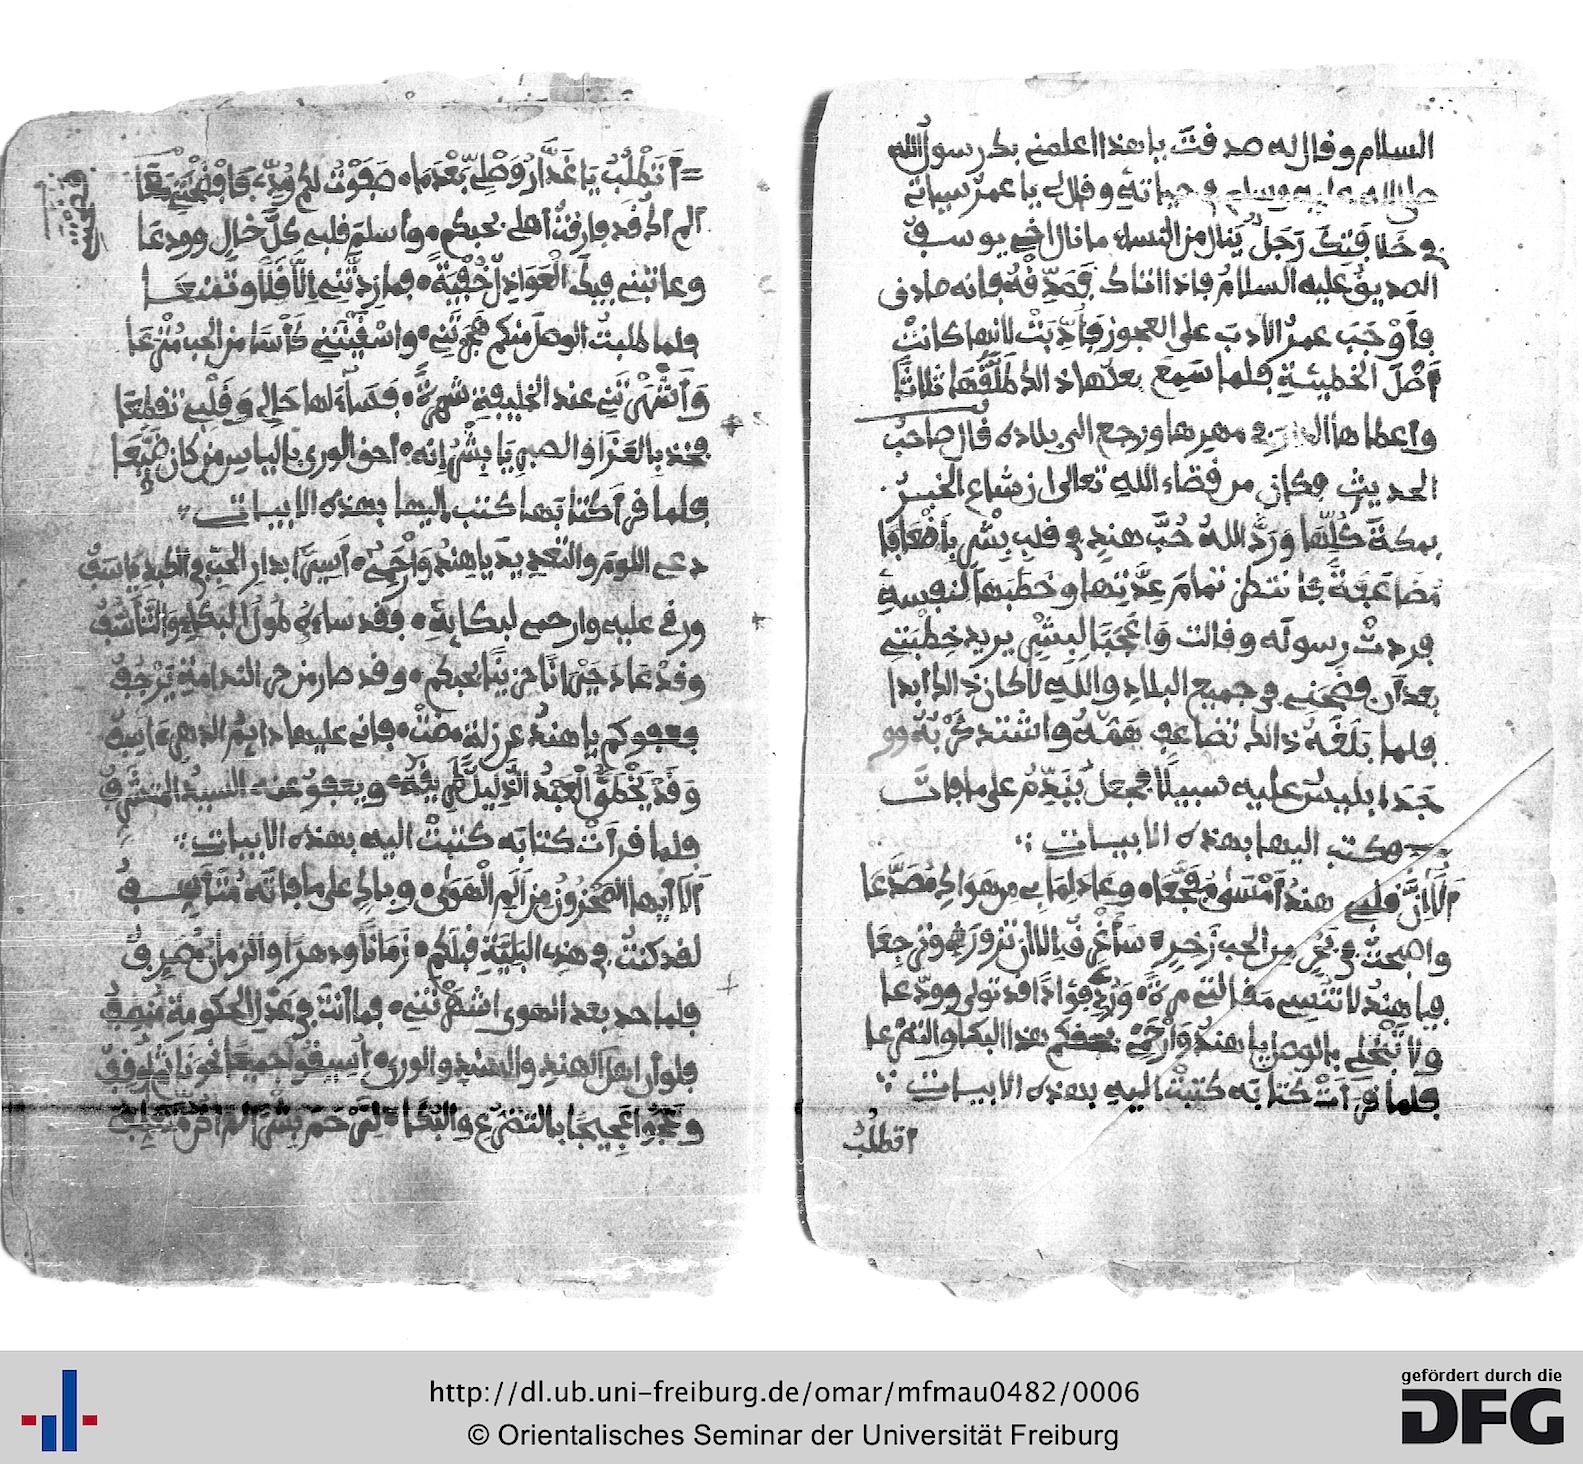 السلام وقال له صدقت يا هذا اعلمني بك رسول الله
صلى الله عليه وسلم في حياته وقال لي يا عمر سياتي
في خلافتك رَجل ينال من النساء ما نال اخي يوسف
الصديق عليه السلام فإذا اتاك فصدّقه فإنه صادق
فأوْجب عمر الادب على العجوز فأدبت لانها كانت
أصْل الخطيئة فلما سَمِعَ بعلها ذالك طلّقها ثلاثا
وأعطاها الذي في مهرها ورجع الى بلاده قال صاحب
الحديث فكان من قضاء الله تعالى ان شاع الخبر
بمكة كلّها وَردّ الله حُبّ هند في قلب بشر بأضعافا
مُضاعفة فانتظر تمام عدّتها وخطبها لنفسه
فردتْ رسوله وقالت واعجبا لبشر يريد خطبتي
بعد أن فضحني في جميع البلاد والله لا كان ذالك ابدا
فلما بَلغه ذالك تضاعف همّه واشتد كربه وو
جَدَ ابليس عليه سبيلًا فجعل يُندّم على ما فات
وكتب اليها بهذه الابيات
ألا انّ قلبي هندُ أمْسَى مُفجّعا وعاد لما بي من هواك مُصدّعا
واصبحت في بحر من الحب زخر سأغرق إلا ان تزورني وترجعا
فيا هند لا تنسي مقالتي مرة وَرُدّي فؤادًا قد تولى وودّعا
ولا تبْخلي بالوصل يا هندُ وارْحمي بحقكم هذا البكا والتضرعا
فلما قرأتْ كتابه كتبتْ اليه بهذه الابيات
اتطلبُ
أَتَطْلُبُ يَا غَدَّارُ وَصْلِي بَعْدَمَا صَفَوْتُ لكم وُدِّي فَافْضَحْتَني مَعَا
ألم أك قد فارقتُ أهلي بحبكم وأسلمَ قلبي كلَّ خالٍ وودعَا
وعاتبني فيك الْعَواذِلُ خُفْيَةً فما زِدتَّني إلّا قلًا وتَمنّعَا
فلما طلبتُ الوصل منكم هَجرْتَني واسْقَيْتَني كأسًا من الحب مُتْرعَا
وَأشْهَرْتَني عند الخليفة شهرةً فَسَاءَ لها حَالي وَقَلْبي تقطّعَا
فخذ بالعَزَا والصبر يَا بِشْرُ إنه أحق الورى بالياس من كان ضيّعَا
فلما قرأ كتابَها كتب إليها بهذه الابيات
دعي اللومَ والتعديدَ يا هندُ وَارْحَمي أسيرًا بدار الحبّ في الكبد يأسفُ
ورقي عليه وارحمي لبكايه فقد ساءهُ طولُ البكاءِ والتأسُّفُ
وقدْ عَادَ حَيْرَانًا حزينًا بحبكم وقد صار من حر الندامة يَرْجُفُ
فعفوكم يا هند عن زلة مضتْ فإني عليها دايمُ الدهرِ ءَاسِفُ
وَقَدْ يُخْطِئُ الْعَبْدُ الذَّلِيلُ طَرِيقَهُ ويعفو عنه السيدُ المتشرفُ
فلما قرأتْ كتابه كتبتْ اليه بهذه الابيات
ألا أيها المحزونُ من ألم الْهَوى وباكٍ على ما فاتَه مُتأسِفُ
لقد كنتُ في هذه البَليّةِ قبلكم زَمانًا ودهرًا والزمانُ مُصرفُ
فلما حد بعد الهوى اشتهَرْتَني فما انتَ في عَدْلِ الحكومةِ مُنصفُ
فلو أن اهل الهند والسند والورى أسيقوا جميعا نحونَا
وعَجّوا عَجيجَا بالتضرّع والبُكَا